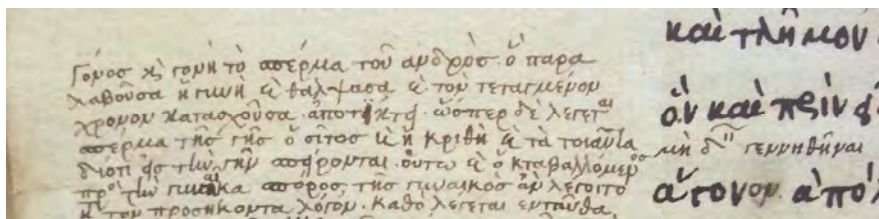 Γόνος κς γονὴ τὸ σπέρμα τοῦ ἀνδρὸς ὃ παρα
λαβοῦσα ἡ γυνὴ κς θάλψασα κς τὸν τεταγμένον
χρόνον κατασχοῦσα ἀποτίκτει. ὥσπερ δὲ λέγεται
σπέρμα τῆς γῆς ὁ σῖτος κς ἡ κριθὴ κς τὰ τοιαῦτα
διότι εἰς τὴν γῆν σπείρονται. οὕτω κς ὁ καταβαλλόμενος
πρὸς τὴν γυναῖκα σπόρος, τῆς γυναικὸς ἂν λέγοιτο
κ τὸν προσήκοντα λόγον. καθὸ λέγεται ἐνταῦθα
καὶ τλῆμον
ὃν καὶ πρὶν
μὴ γεννηθῆναι
ἄγονον ἀπό